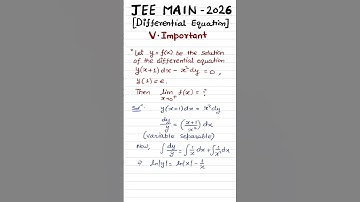 JEE MAIN-2026
[Differential Equation]
V.Important
"Let y=f(x) be the solution
of the differential equation
y(x+1)dx-x²dy=0,
y(1)=e.
Then lim x→0⁺ f(x)=?
Solⁿ: y(x+1)dx = x²dy
dy/y = (x+1/x²)dx
(variable separable)
Now, ∫dy/y = ∫1/x dx+∫1/x² dx
⇒ ln|y| = ln|x| - 1/x